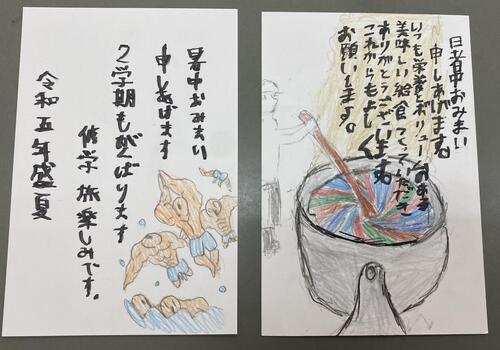 暑中おみまい
申しあげます
2学期もがんばります
修学旅楽しみです。
令和五年盛夏
暑中おみまい
申しあげます。
いつも栄養とボリュームのある
美味しい給食つくっていただき
ありがとうございます。
これからもよろしく
お願いします。